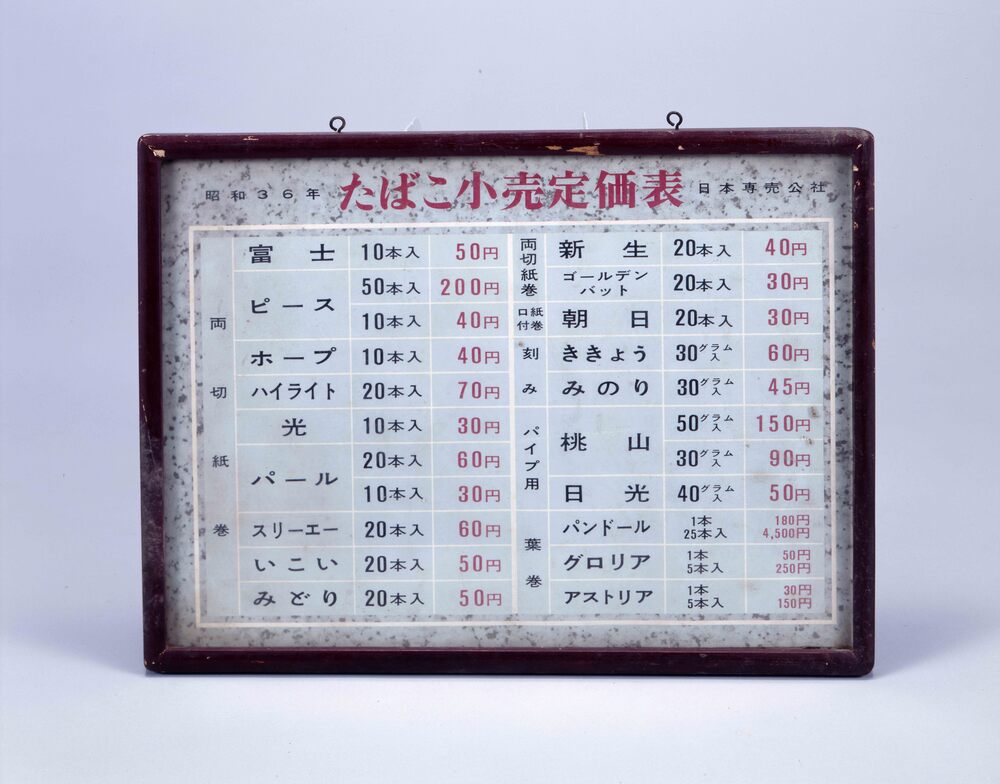 昭和36年 たばこ小売定価表 日本専売公社
両切紙巻
富士 10本入 50円
ピース 50本入 200円
10本入 40円
ホープ 10本入 40円
ハイライト 20本入 70円
光 10本入 30円
パール 20本入 60円
10本入 30円
スリーエー 20本入 60円
いこい 20本入 50円
みどり 20本入 50円
両切紙巻
新生 20本入 40円
ゴールデン
バット 20本入 30円
口付紙巻
朝日 20本入 30円
刻み
ききょう 30グラム入 60円
みのり 30グラム入 45円
パイプ用
桃山 50グラム入 150円
30グラム入 90円
日光 40グラム入 50円
葉巻
パンドール 1本 180円
25本入 4,500円
グロリア 1本 50円
5本入 250円
アストリア 1本 30円
5本入 150円